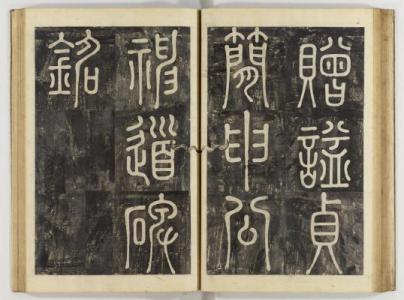 贈諡貞
簡申公
神道碑
銘